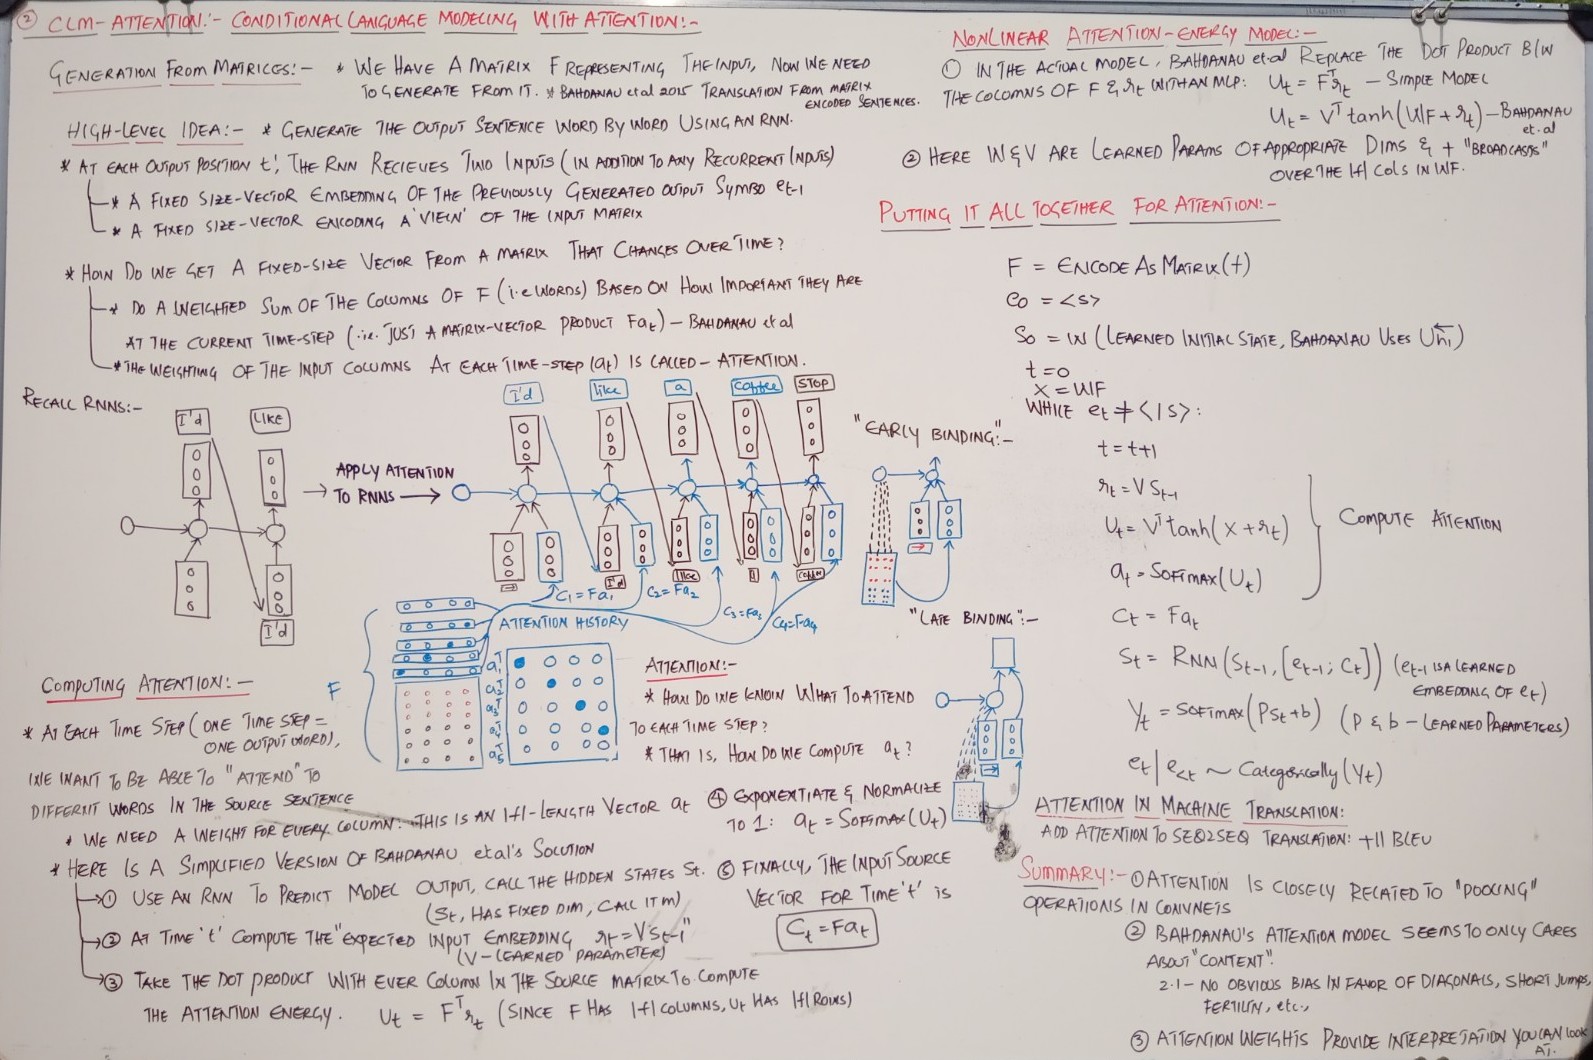 ② CLM-ATTENTION:- CONDITIONAL LANGUAGE MODELING WITH ATTENTION:-
GENERATION FROM MATRICES:- * WE HAVE A MATRIX F REPRESENTING THE INPUT, NOW WE NEED
TO GENERATE FROM IT. * BAHDANAU et al 2015 TRANSLATION FROM MATRIX
ENCODED SENTENCES.
HIGH-LEVEL IDEA:- * GENERATE THE OUTPUT SENTENCE WORD BY WORD USING AN RNN.
* AT EACH OUTPUT POSITION t', THE RNN RECIEVES TWO INPUTS (IN ADDITION TO ANY RECURRENT INPUTS)
* A FIXED SIZE-VECTOR EMBEDDING OF THE PREVIOUSLY GENERATED OUTPUT SYMBO et-1
* A FIXED SIZE-VECTOR ENCODING A 'VIEW' OF THE INPUT MATRIX
* HOW DO WE GET A FIXED-SIZE VECTOR FROM A MATRIX THAT CHANGES OVER TIME?
* DO A WEIGHTED SUM OF THE COLUMNS OF F (i.e WORDS) BASED ON HOW IMPORTANT THEY ARE
AT THE CURRENT TIME-STEP (.ie. JUST A MATRIX-VECTOR PRODUCT Fat) - BAHDANAU et al
* THE WEIGHTING OF THE INPUT COLUMNS AT EACH TIME-STEP (at) IS CALLED - ATTENTION.
RECALL RNNS:-
I'd
LIKE
I'd
→ APPLY ATTENTION
TO RNNS →
I'd
like
a
coffee
STOP
I'd
like
a
coffee
C1 = Fa1
C2 = Fa2
C3 = Fa3
C4 = Fa4
ATTENTION HISTORY
F
a1ᵀ
a2ᵀ
a3ᵀ
a4ᵀ
a5ᵀ
"EARLY BINDING":-
"LATE BINDING":-
COMPUTING ATTENTION:-
* AT EACH TIME STEP (ONE TIME STEP =
ONE OUTPUT WORD),
WE WANT TO BE ABLE TO "ATTEND" TO
DIFFERNT WORDS IN THE SOURCE SENTENCE
* WE NEED A WEIGHT FOR EVERY COLUMN: THIS IS AN |f|-LENGTH VECTOR at
* HERE IS A SIMPLIFIED VERSION OF BAHDANAU etal's SOLUTION
① USE AN RNN TO PREDICT MODEL OUTPUT, CALL THE HIDDEN STATES St.
(St, HAS FIXED DIM, CALL IT M)
② AT TIME 't' COMPUTE THE "EXPECTED INPUT EMBEDDING rt = VSt-1"
(V-LEARNED PARAMETER)
③ TAKE THE DOT PRODUCT WITH EVER COLUMN IN THE SOURCE MATRIX TO COMPUTE
THE ATTENTION ENERGY. Ut = Fᵀrt (SINCE F HAS |f| COLUMNS, Ut HAS |f| ROWS)
ATTENTION:-
* HOW DO WE KNOW WHAT TO ATTEND
TO EACH TIME STEP?
* THAT IS, HOW DO WE COMPUTE at?
④ EXPONENTIATE & NORMALIZE
TO 1: at = SOFTMAX(Ut)
⑤ FINALLY, THE INPUT SOURCE
VECTOR FOR TIME 't' IS
Ct = Fat
NONLINEAR ATTENTION-ENERGY MODEL:-
① IN THE ACTUAL MODEL, BAHDANAU et al REPLACE THE DOT PRODUCT B/W
THE COLUMNS OF F & rt WITH AN MLP: Ut = Fᵀrt - SIMPLE MODEL
Ut = Vᵀ tanh(WF + rt) - BAHDANAU
et.al
② HERE W & V ARE LEARNED PARAMS OF APPROPRIATE DIMS & + "BROADCASTS"
OVER THE |f| COLS IN WF.
PUTTING IT ALL TOGETHER FOR ATTENTION:-
F = ENCODE AS MATRIX(f)
e0 = <S>
S0 = W (LEARNED INITIAL STATE, BAHDANAU USES Uh̄1)
t=0
X = WF
WHILE et ≠ </S>:
t = t+1
rt = VSt-1
Ut = Vᵀ tanh(X + rt)
at = SOFTMAX(Ut)
COMPUTE ATTENTION
Ct = Fat
St = RNN(St-1, [et-1; Ct]) (et-1 IS A LEARNED
EMBEDDING OF et)
Yt = SOFTMAX(PSt+b) (P & b - LEARNED PARAMETERS)
et | e<t ~ Categorically(Yt)
ATTENTION IN MACHINE TRANSLATION:
ADD ATTENTION TO SEQ2SEQ TRANSLATION: +11 BLEU
SUMMARY:- ① ATTENTION IS CLOSELY RELATED TO "POOLING"
OPERATIONS IN CONVNETS
② BAHDANAU'S ATTENTION MODEL SEEMS TO ONLY CARES
ABOUT "CONTENT".
2.1 - NO OBVIOUS BIAS IN FAVOR OF DIAGONALS, SHORT JUMPS,
FERTILITY, etc.,
③ ATTENTION WEIGHTS PROVIDE INTERPRETATION YOU CAN LOOK
AT.